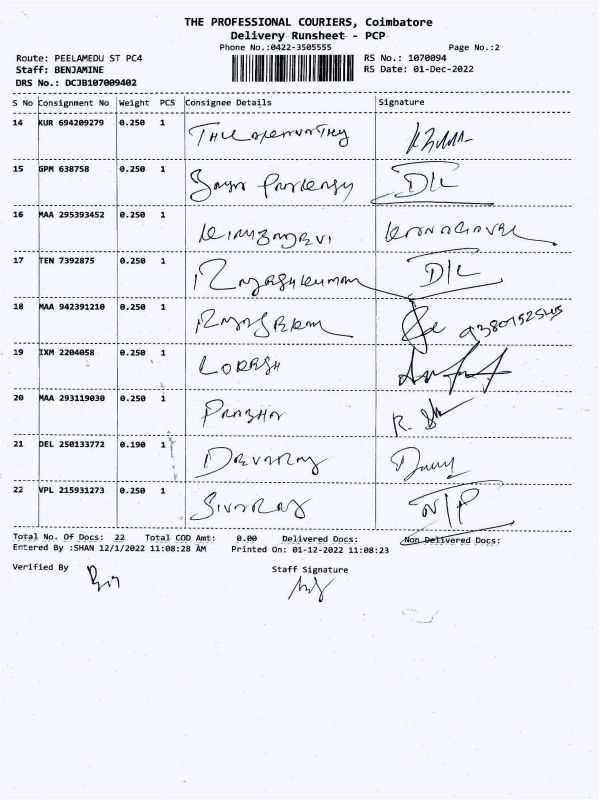 THE PROFESSIONAL COURIERS, Coimbatore
Delivery Runsheet - PCP
Phone No.:0422-3505555 Page No.:2
Route: PEELAMEDU ST PC4 RS No.: 1070094
Staff: BENJAMINE RS Date: 01-Dec-2022
DRS No.: DCJB107009402
S No Consignment No Weight PCS Consignee Details Signature
14 KUR 694209279 0.250 1
15 GPM 638758 0.250 1 D/L
16 MAA 295393452 0.250 1
17 TEN 7392875 0.250 1 D/L
18 MAA 942391210 0.250 1
19 IXM 2204058 0.250 1 LOKESH
20 MAA 293119030 0.250 1 PRABHA
21 DEL 250133772 0.190 1 DEVARAJ
22 VPL 215931273 0.250 1 SIVARAJ N/P
Total No. Of Docs: 22 Total COD Amt: 0.00 Delivered Docs: Non Delivered Docs:
Entered By :SHAN 12/1/2022 11:08:28 AM Printed On: 01-12-2022 11:08:23
Verified By Staff Signature